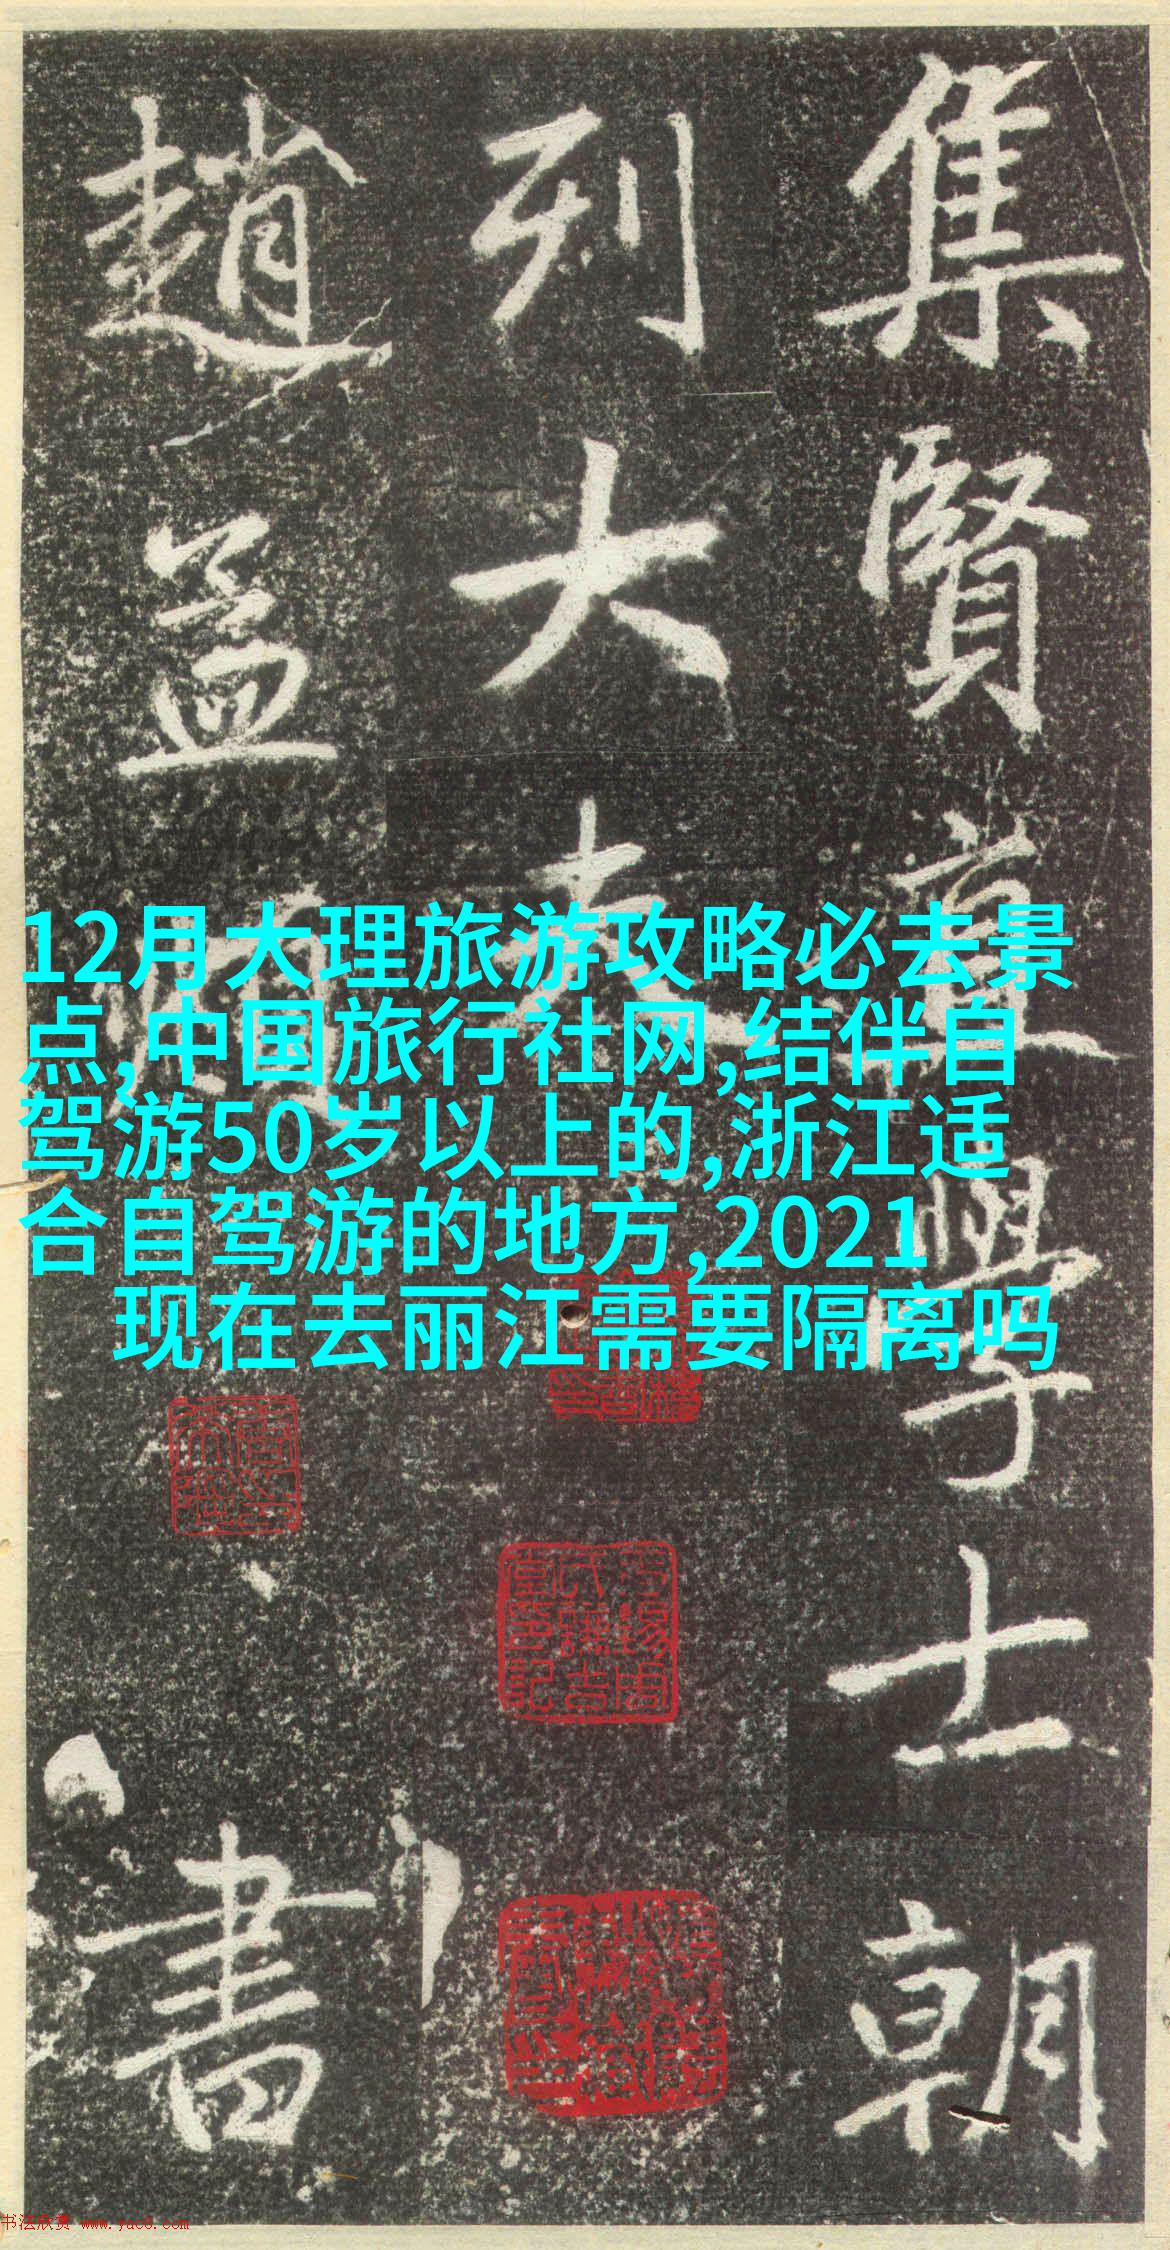 集賢直學士朝
列大夫
趙孟頫書
12月大理旅游攻略必去景
点,中国旅行社网,结伴自
驾游50岁以上的,浙江适
合自驾游的地方,2021
现在去丽江需要隔离吗
书法欣赏 www.yac8.com